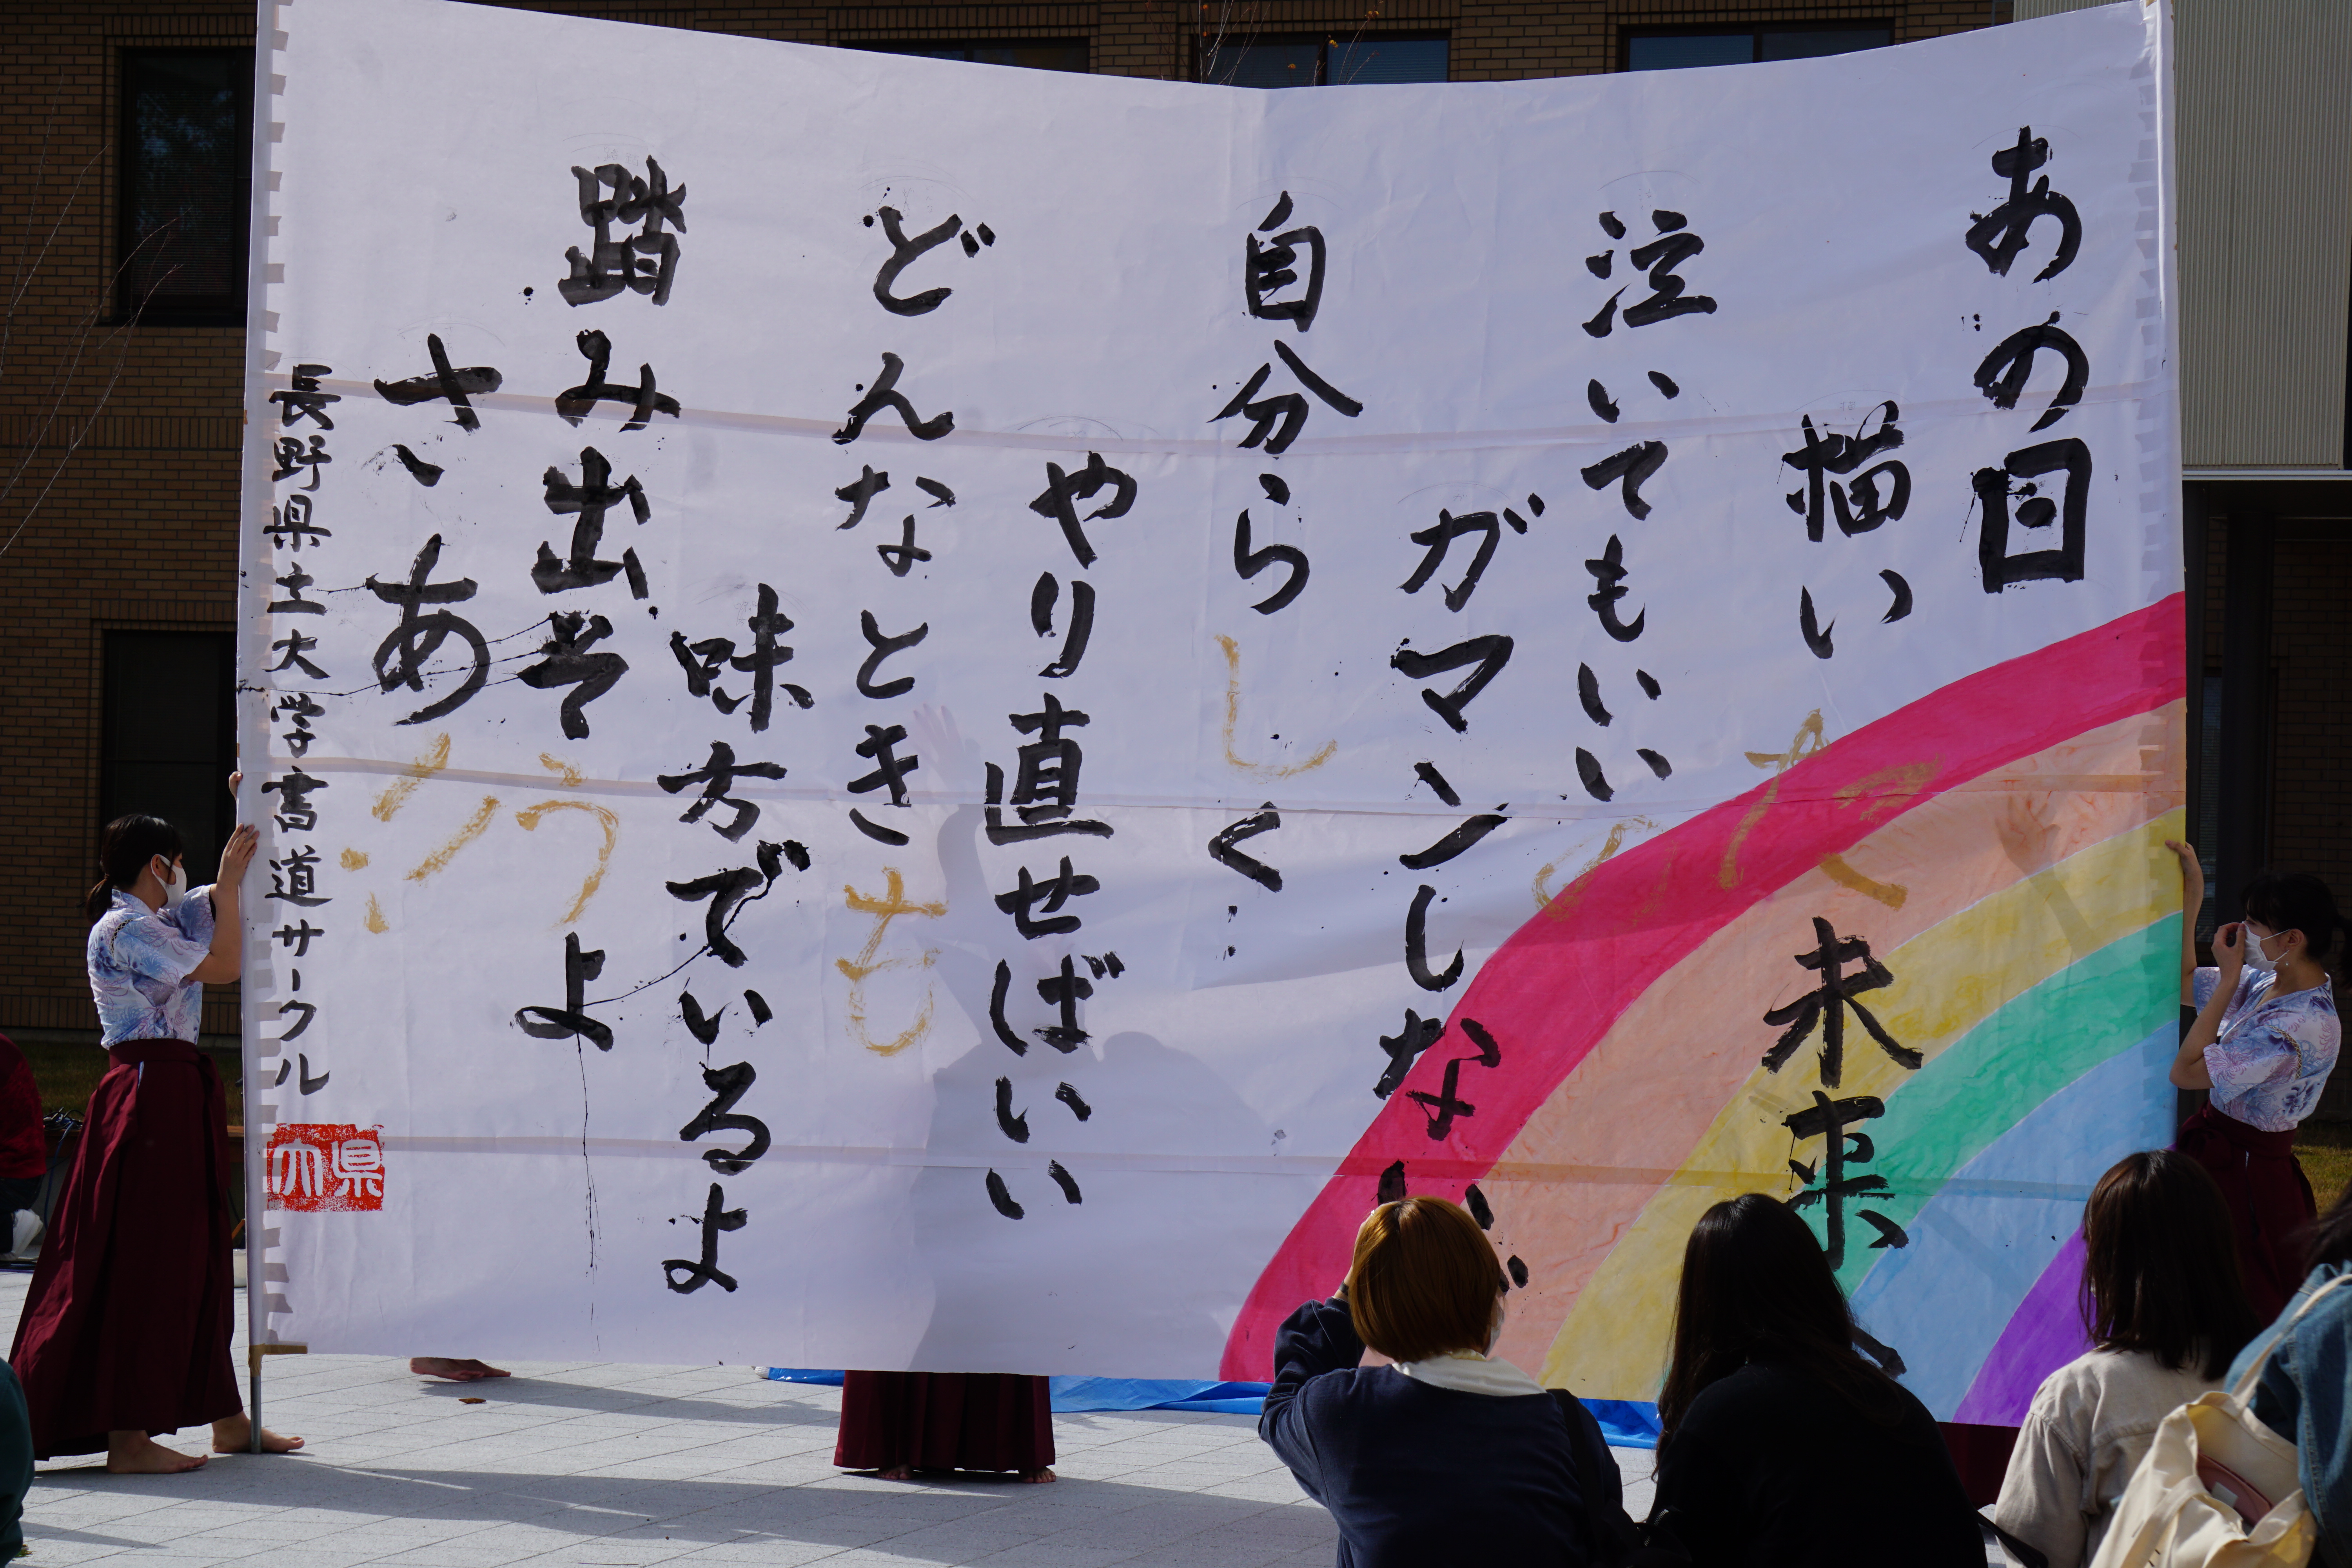 あの日
描いた未来
泣いてもいいの
ガマンしない
自分らしく
やり直せばいい
どんなときも
味方でいるよ
踏み出そうよ
さあ!!
長野県立大学書道サークル
県大